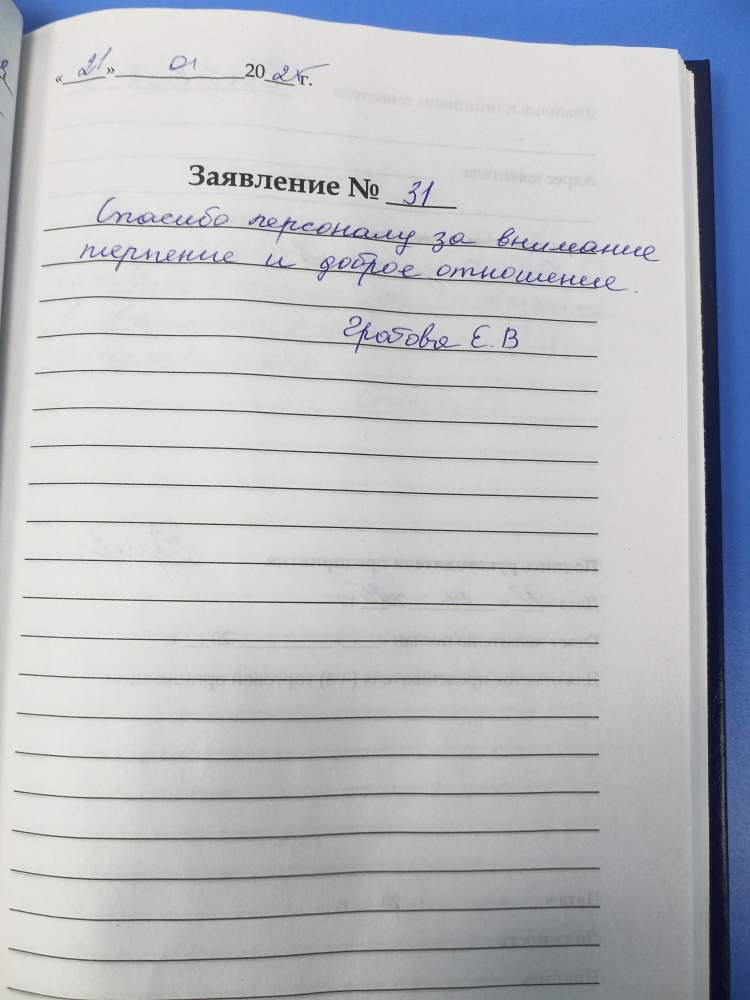 «21» 01 2025 г.
Заявление № 31
Спасибо персоналу за внимание
терпение и доброе отношение.
Е. В